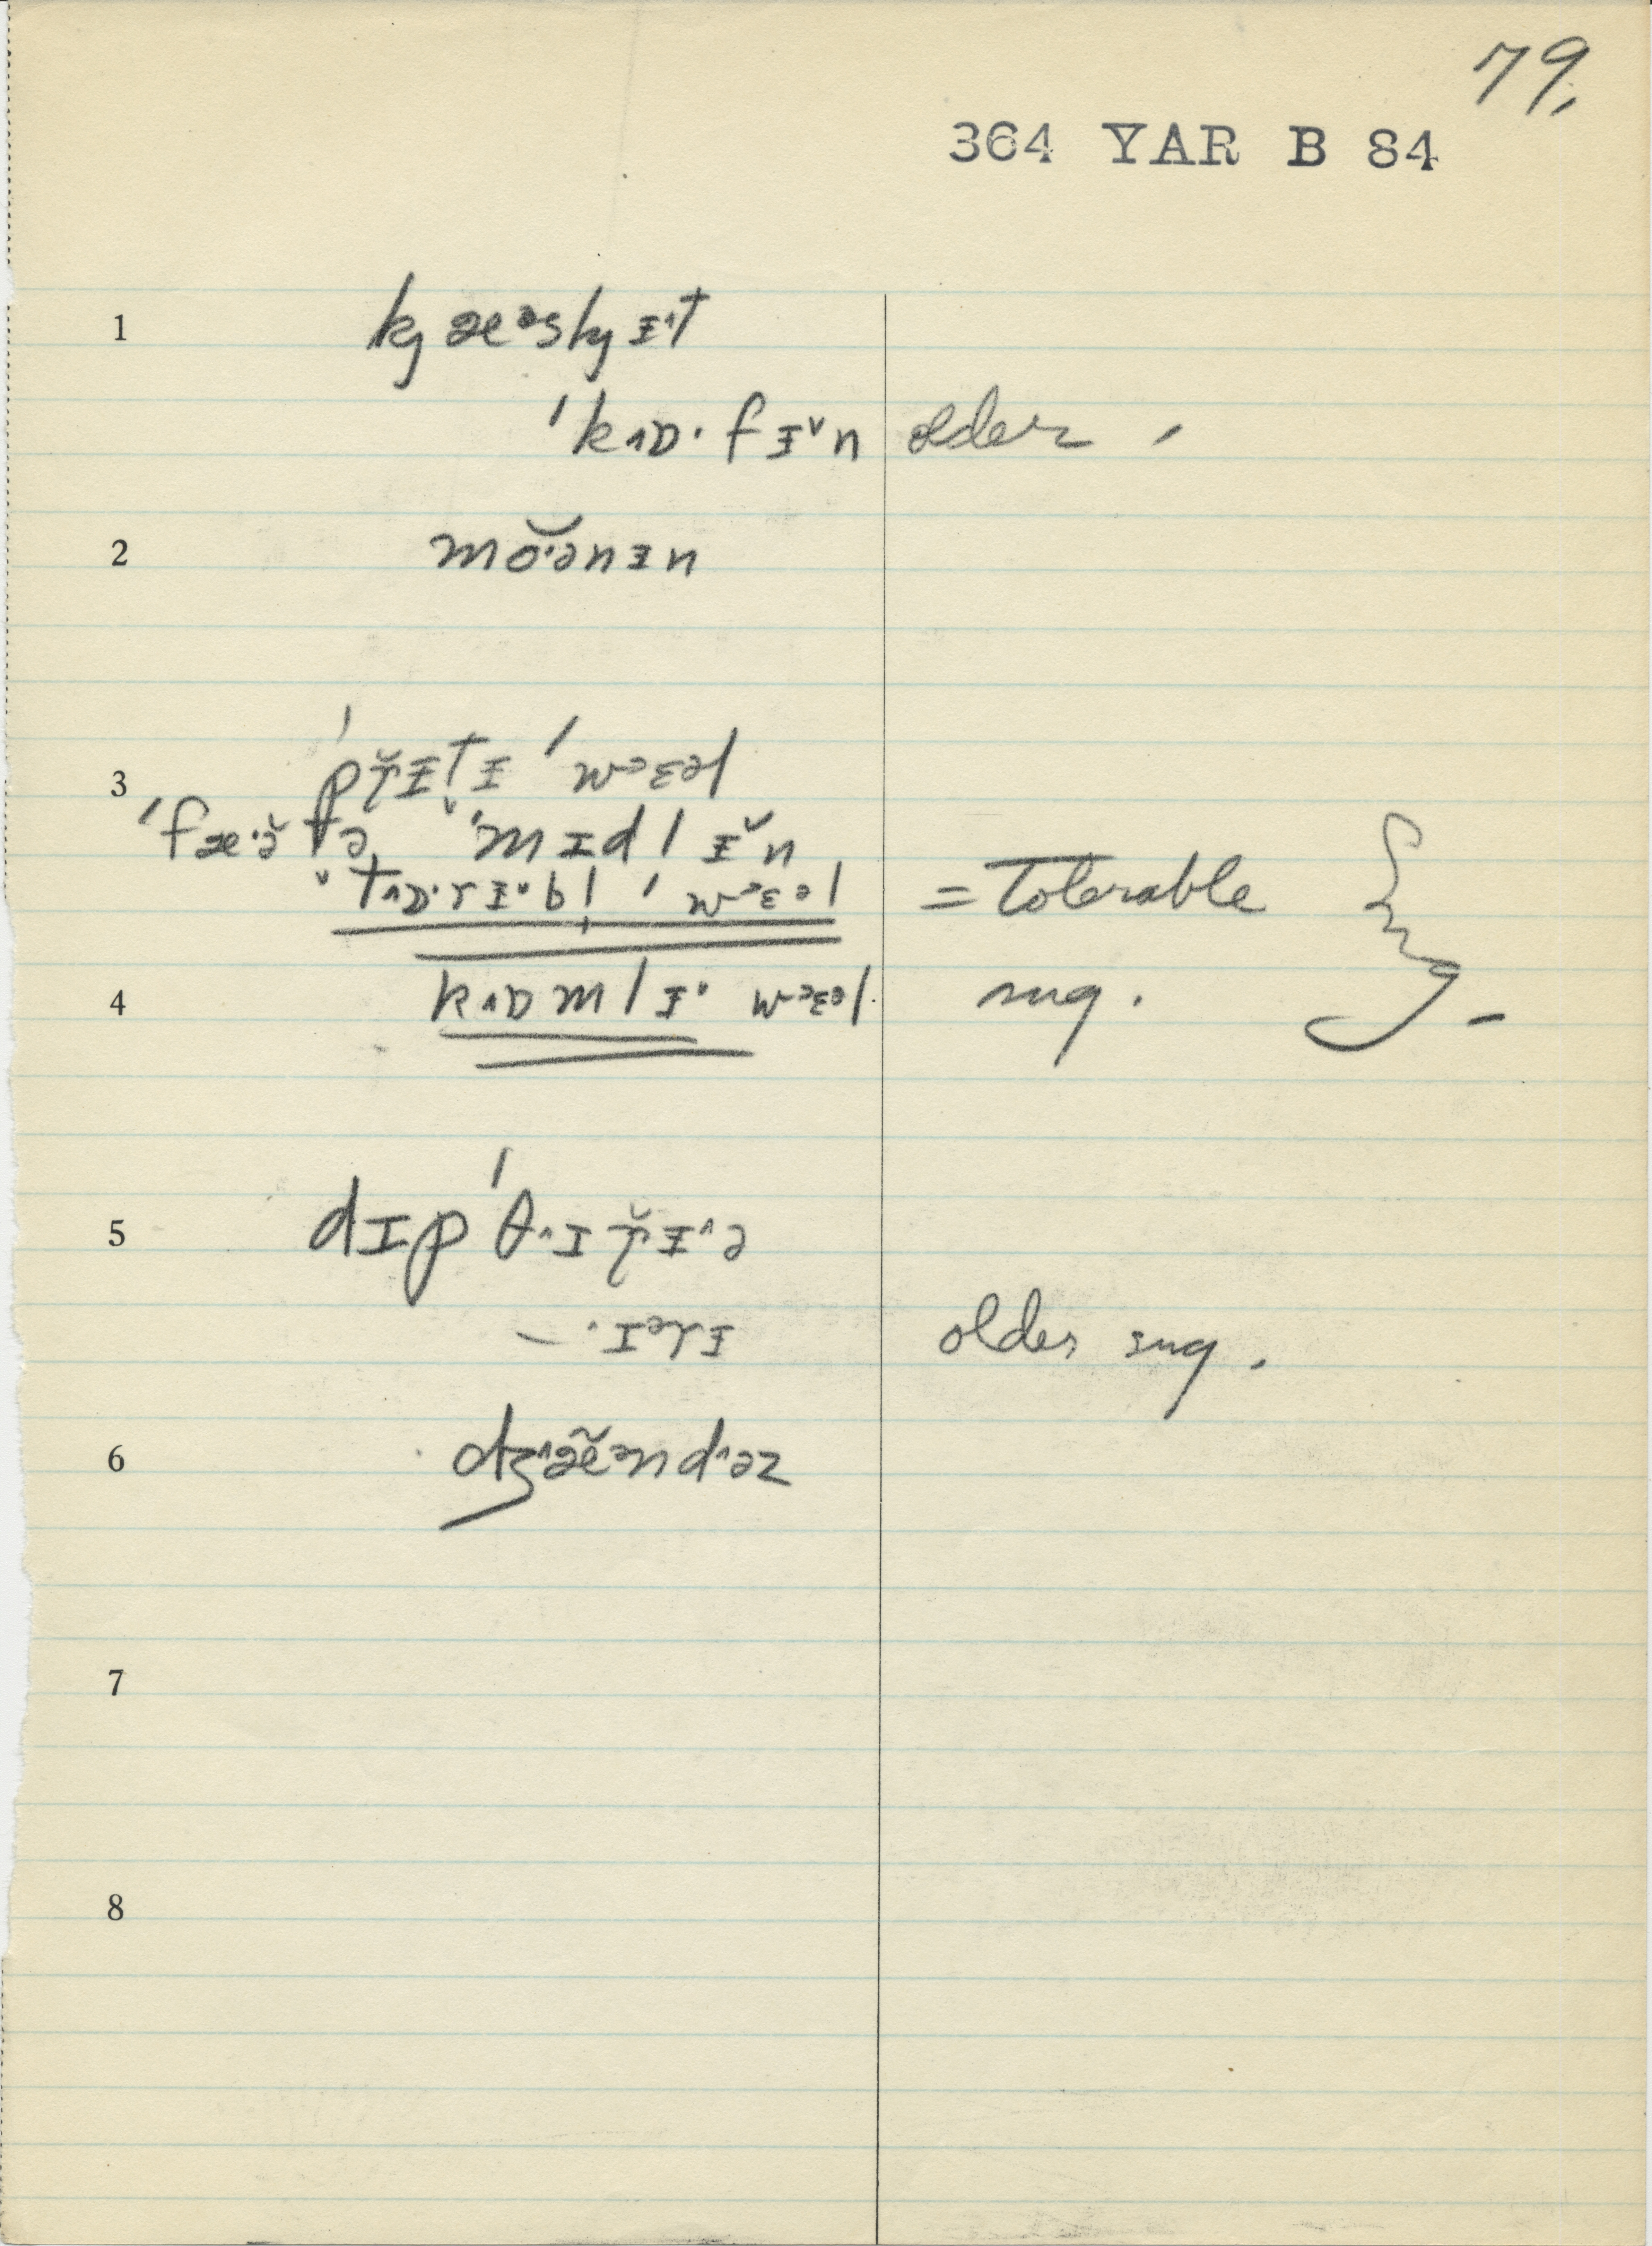 79.
364 YAR B 84
1 kj æᵊskj ɪ˄t
ˈk˄ɒ· f ɪ˅n older ,
2 mŏ·ənɪn
3 ˈpr̆ɪt̬ɪ ˈwᵊɛəl
ˈfæ·ə̆ tə ˈmɪdl ɪ˅n
ˈt˄ɒ·rɪ˅bl̩ ˈwᵊɛəl = Tolerable
4 k˄ɒmlɪ˅ wᵊɛəl. sug. -
5 dɪpˈθ˄ɪr̆ɪ˄ə
— ·ɪᵊrɪ older sug.
6 dʒ˄æ̃ĕᵊnd˄əz
7
8